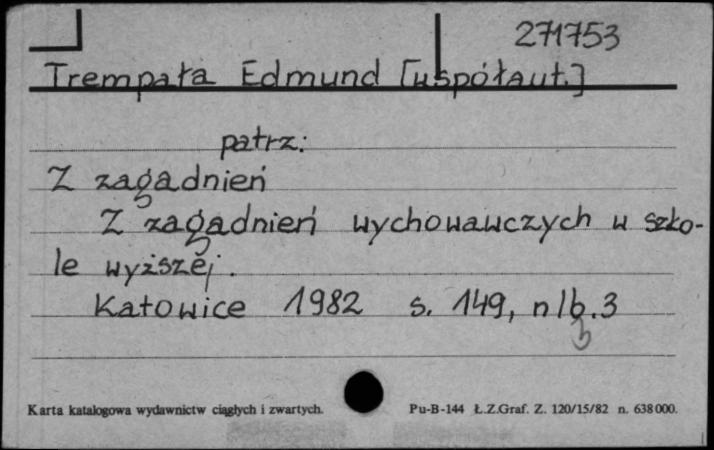 271753
Trempała Edmund [współaut.]
patrz:
Z zagadnień
Z zagadnień wychowawczych w szko-
le wyższej.
Katowice 1982 s. 149, nlb.3
Karta katalogowa wydawnictw ciągłych i zwartych. Pu-B-144 Ł.Z.Graf. Z. 120/15/82 n. 638000.